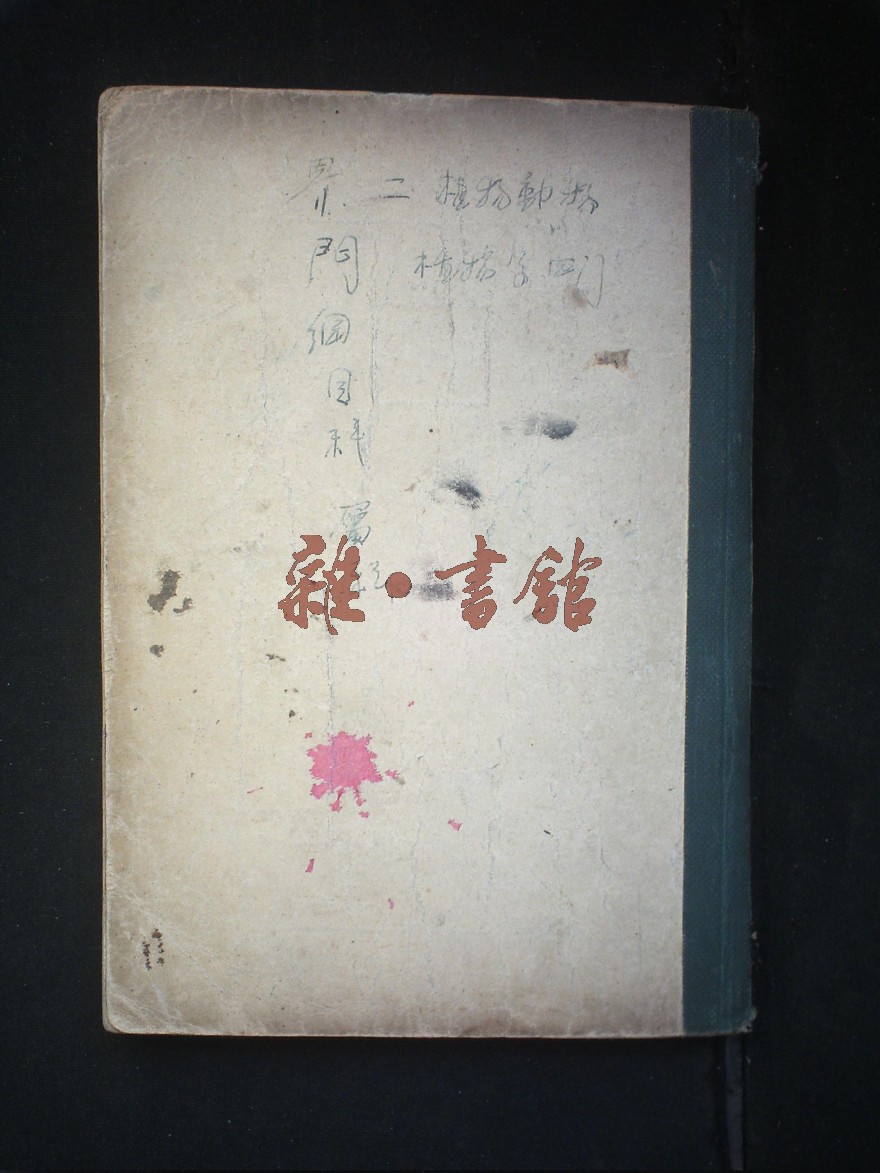 界 二 植物動物
門 植物分四门
綱
目
科
屬
雜·書館